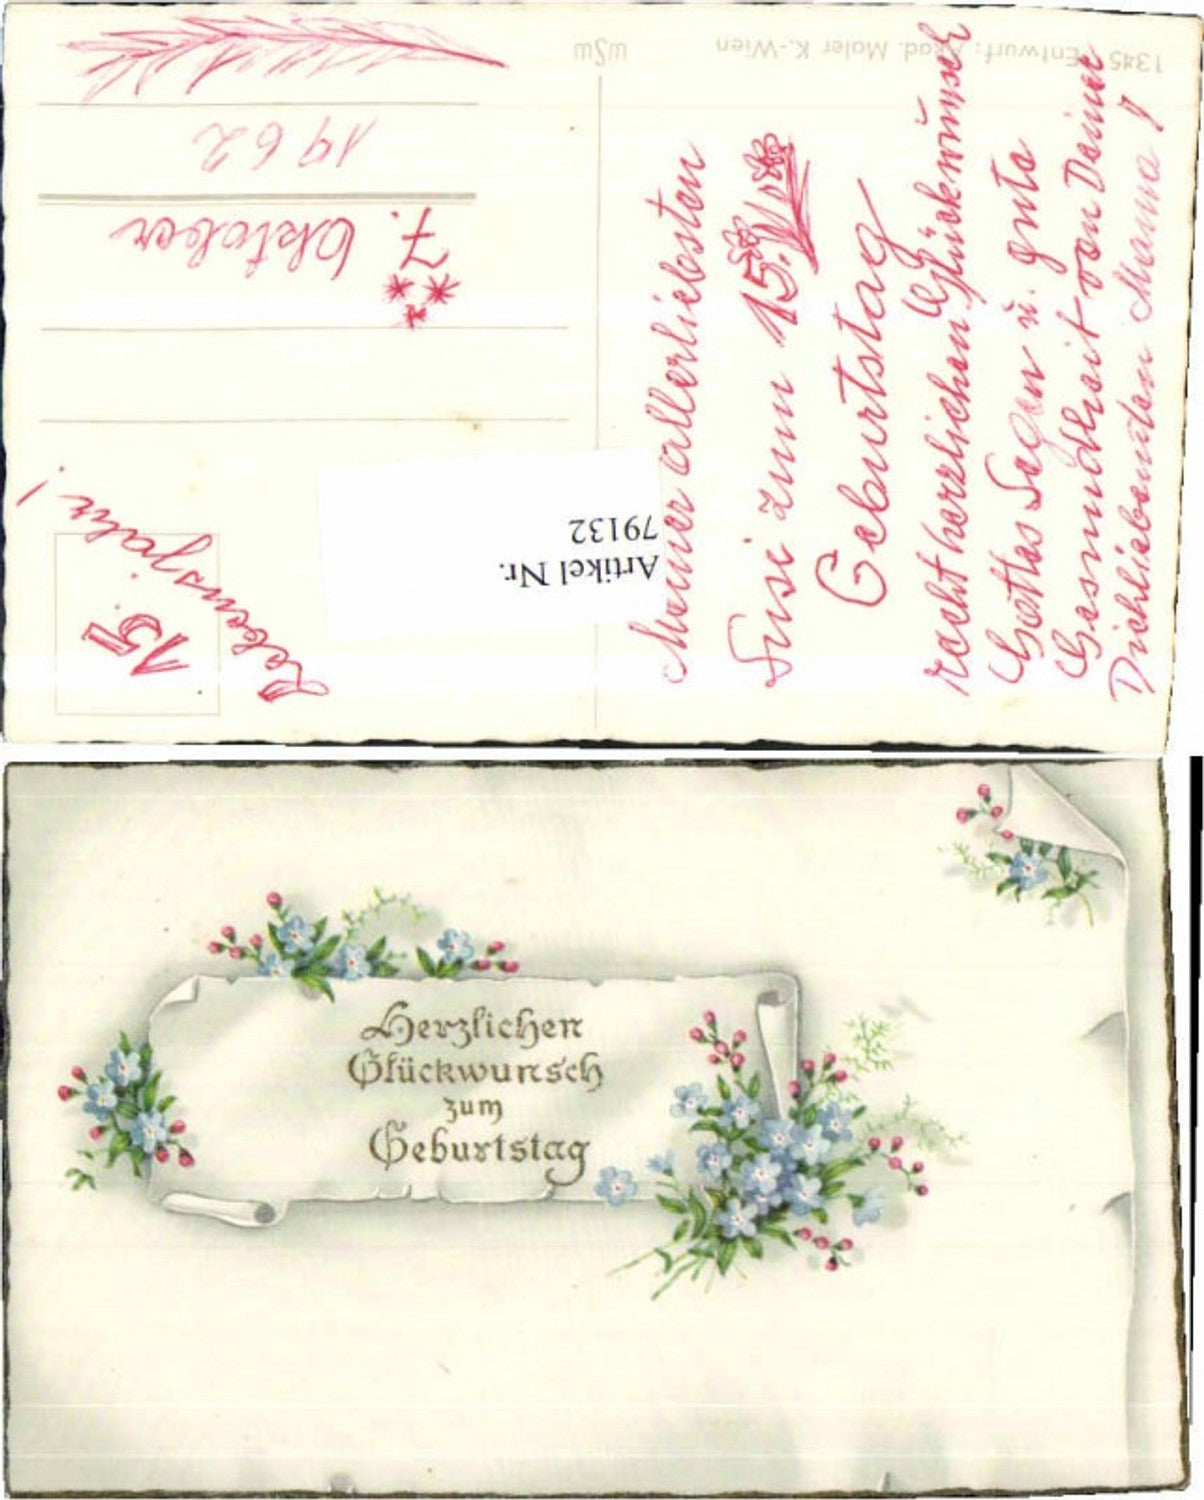 1345 Entwurf: Akad. Maler K.-Wien
WSW
Meiner allerliebsten
Susi zum 15.
Geburtstag
recht herzlichen Glückwunsch
Gottes Segen u. gute
Gesundheit von Deiner
Dichliebenden Mama!
1962
7. Oktober
15.
Lebensjahr!
Artikel Nr.
79132
Herzlichen
Glückwunsch
zum
Geburtstag